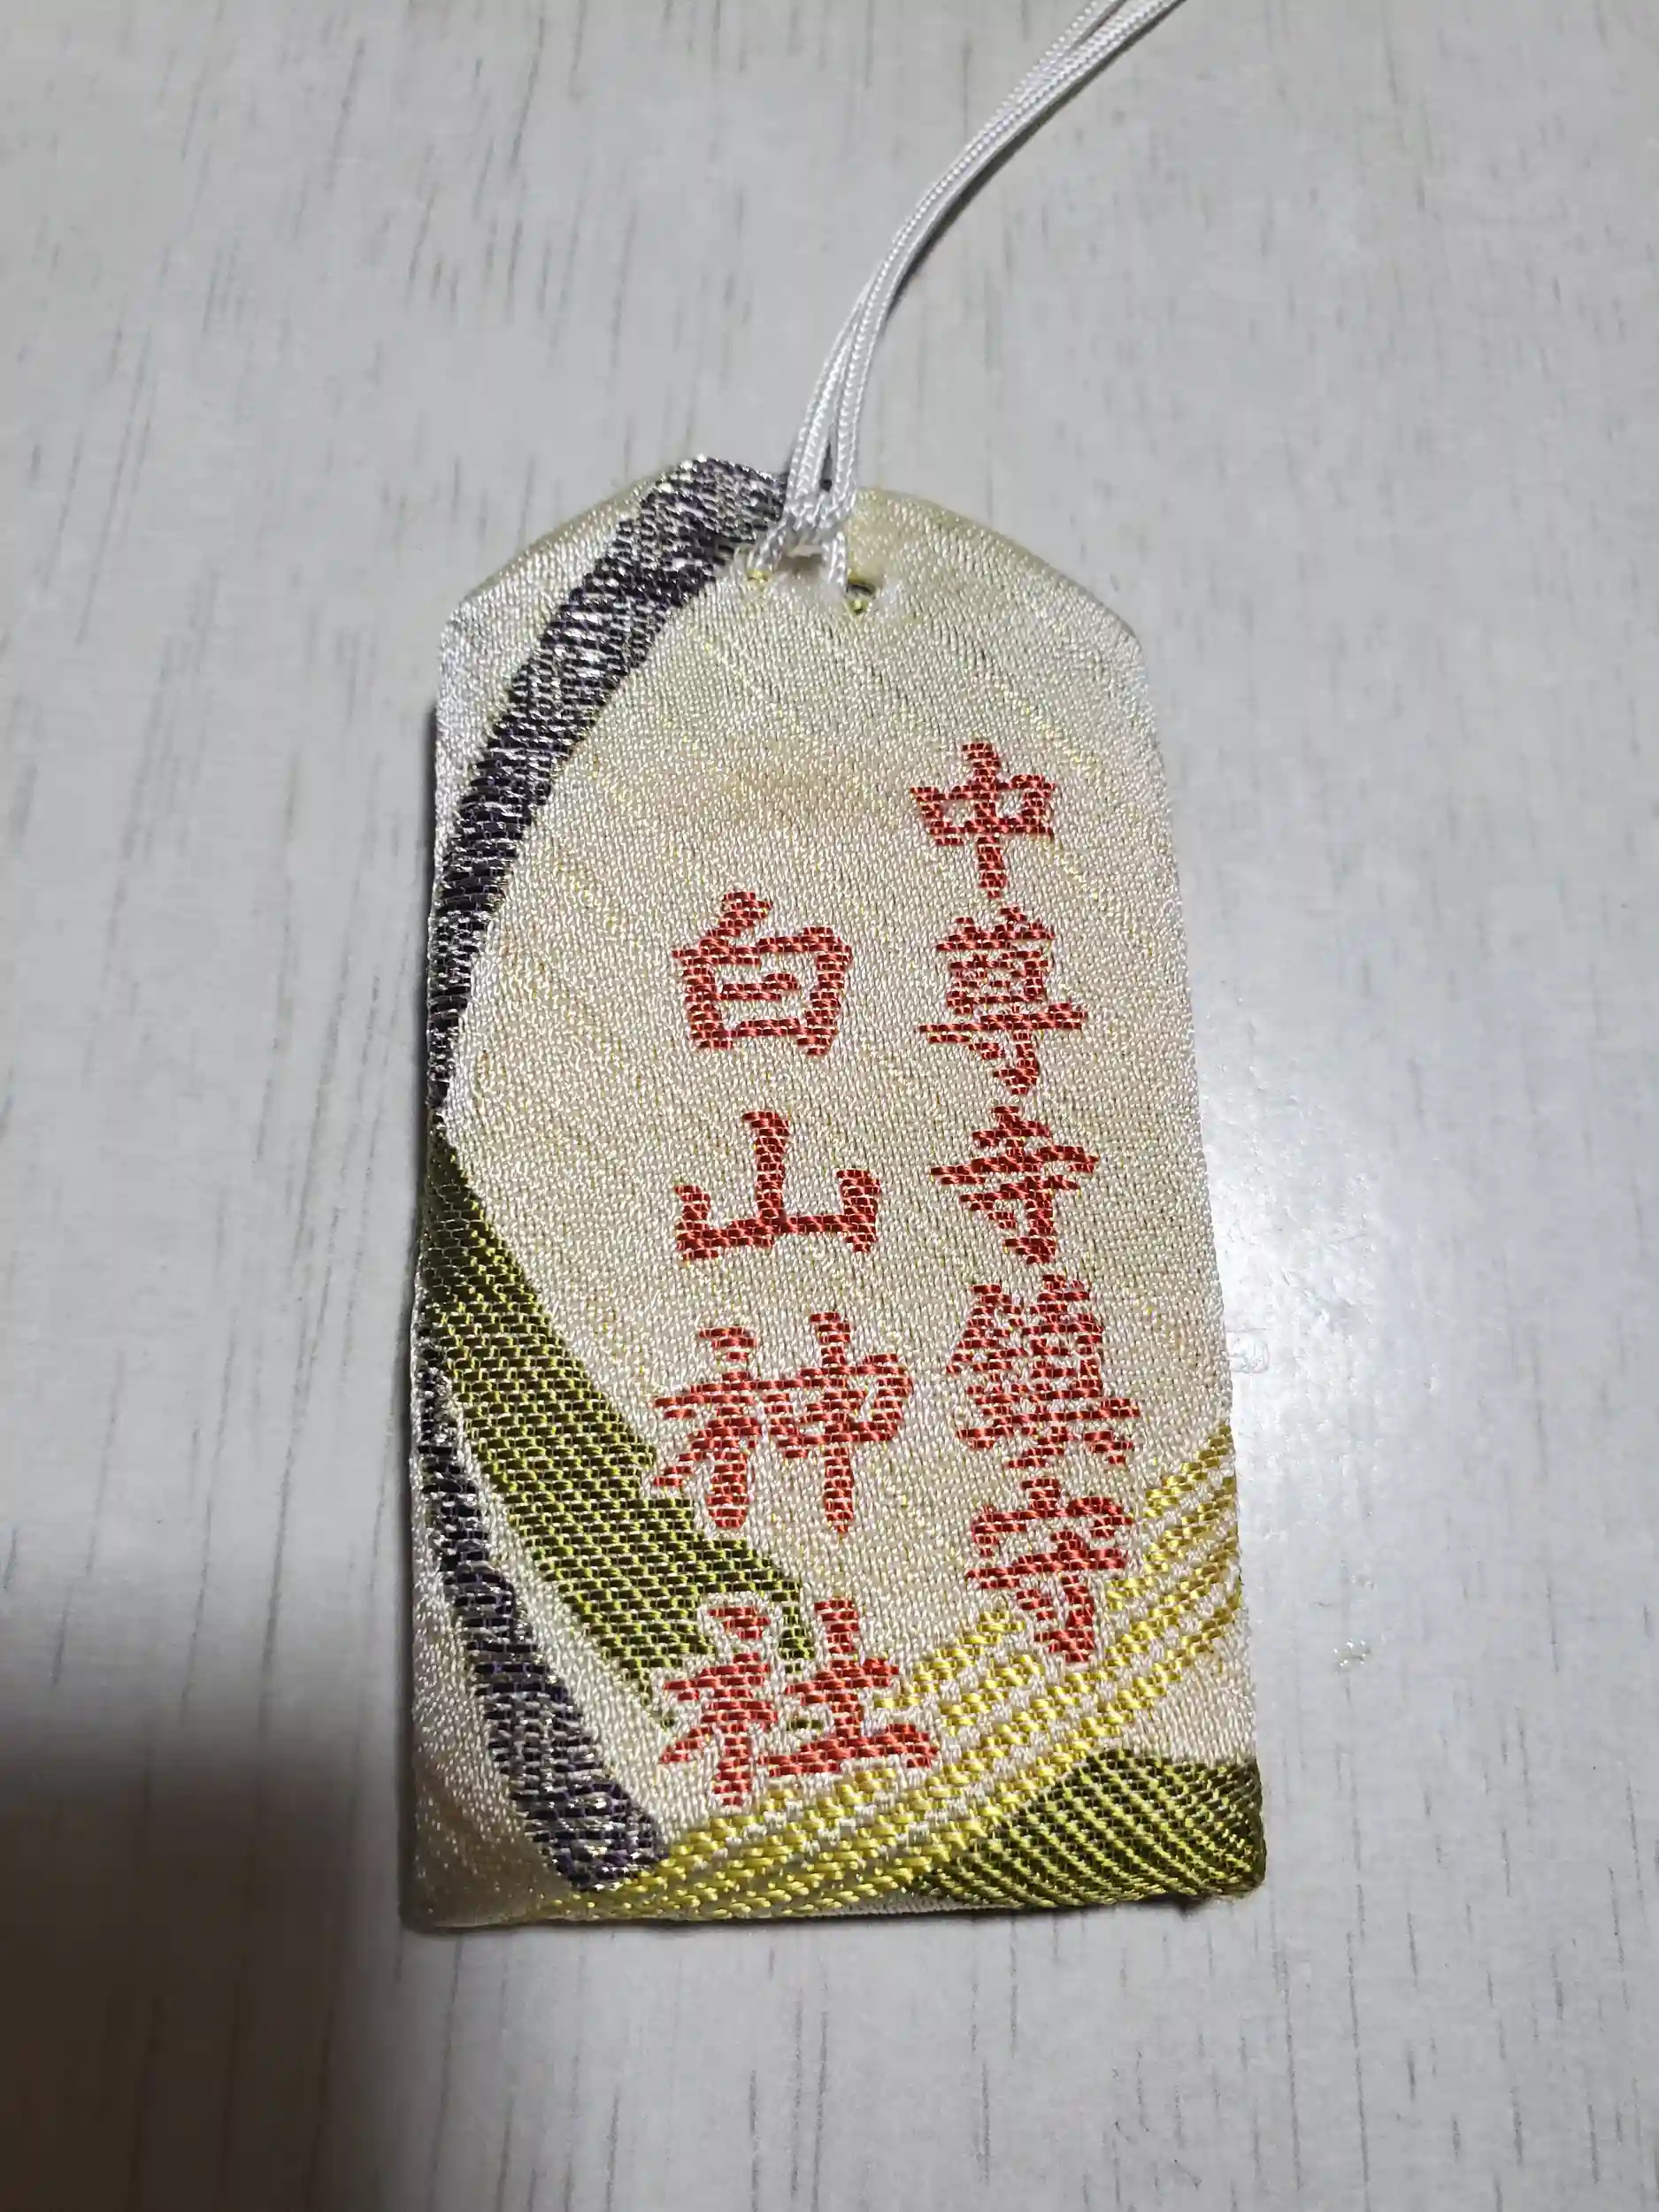 中尊寺鎮守
白山神社